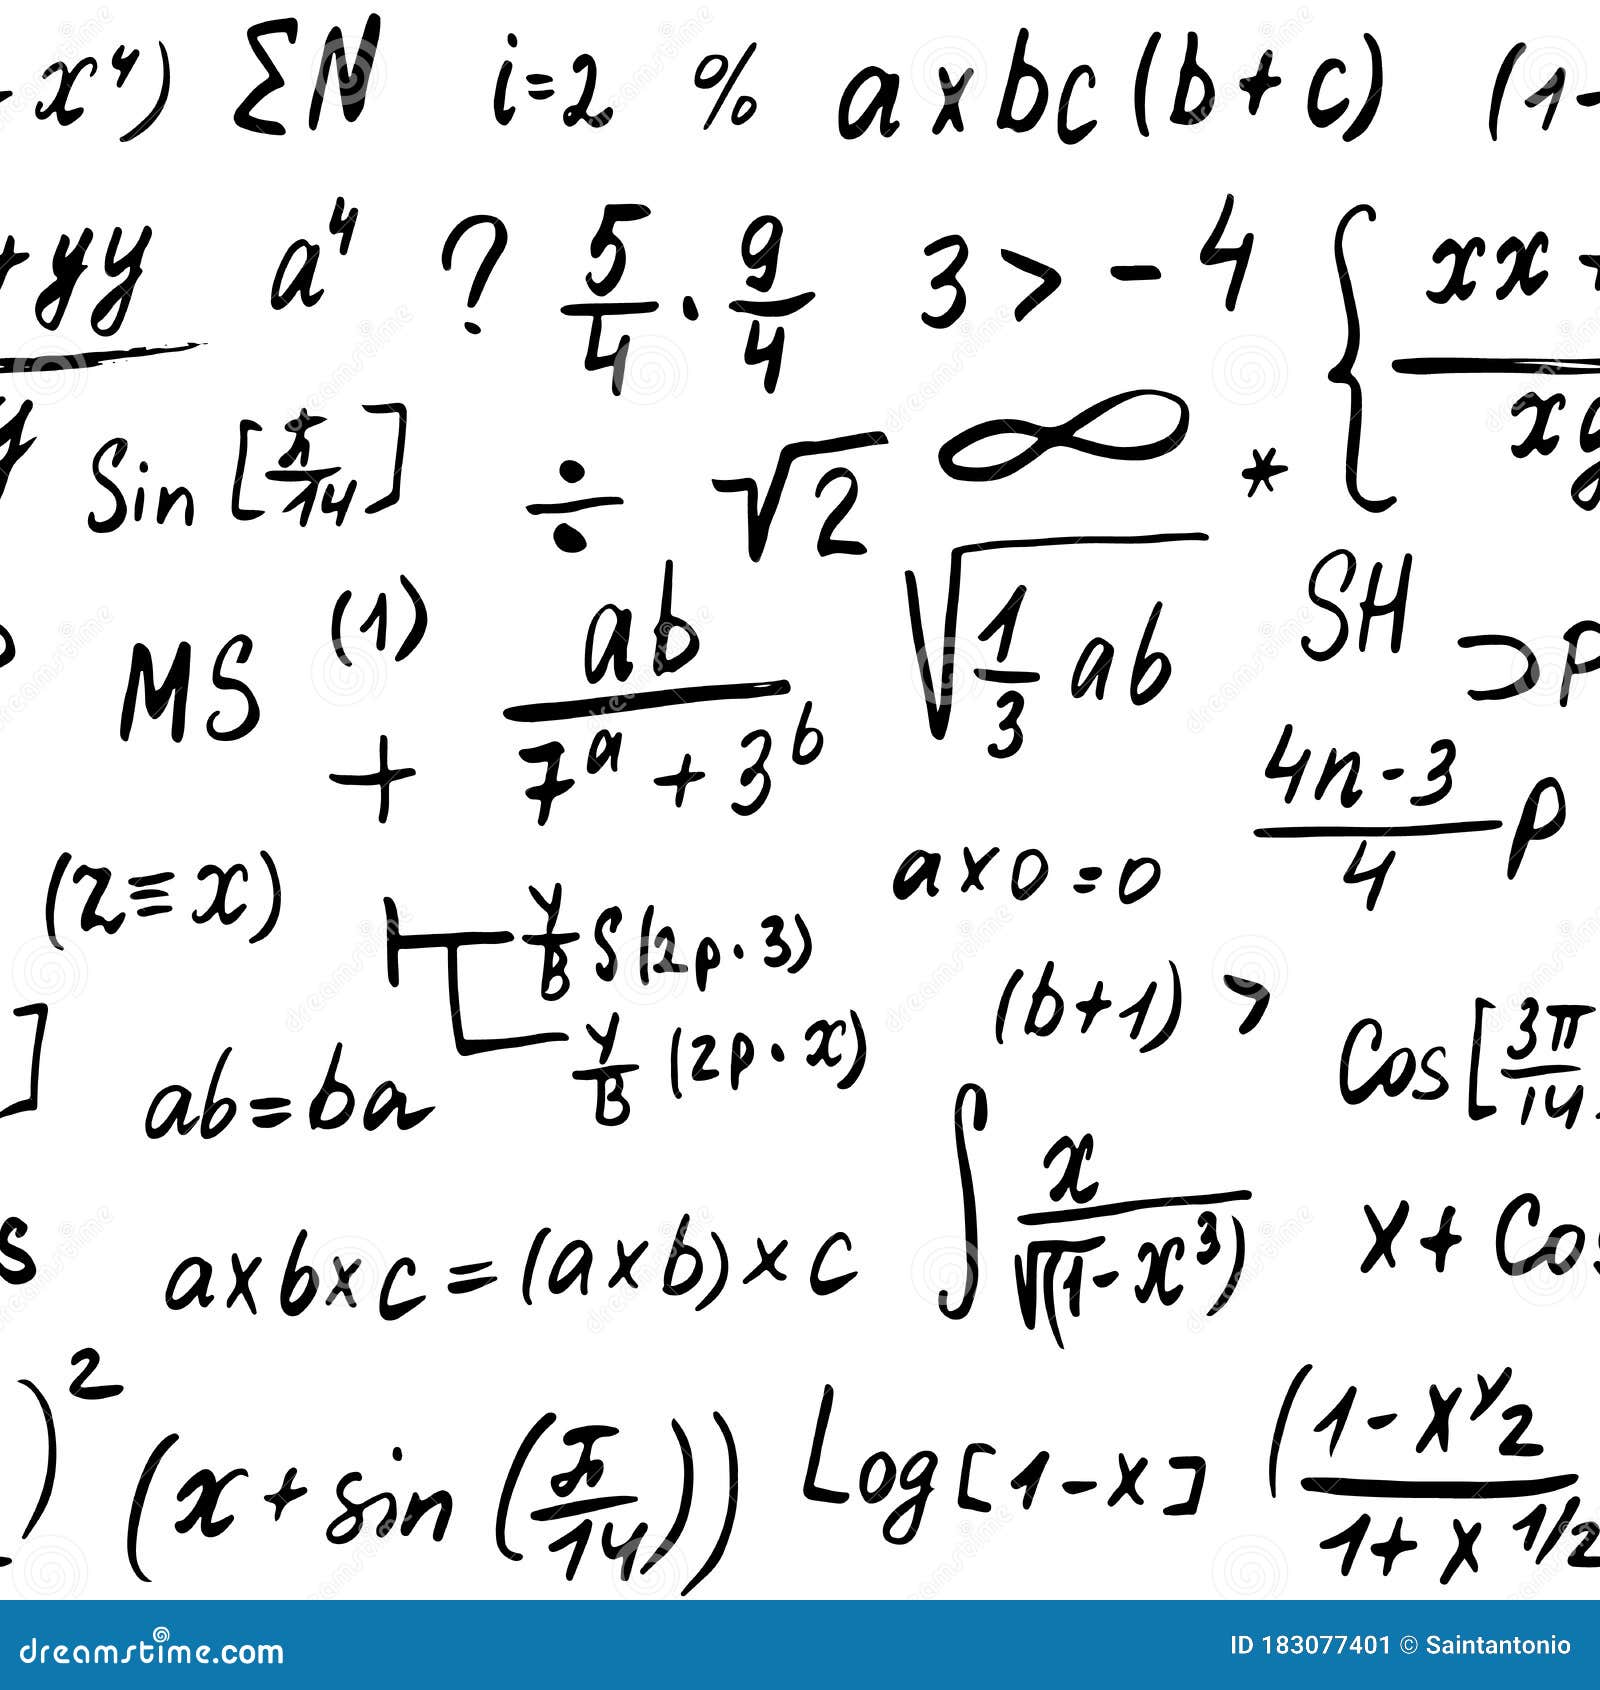 - x⁴) ΣN i=2 % axbc(b+c) (1-
+yy a⁴ ? 5/4 · 9/4 3 > -4 { xx +
y Sin [π/14] ÷ √2 ∞ * xy
MS (1) ab/(7ᵃ + 3ᵇ) √(1/3 ab) SH ⊃P
+ (4n-3)/4 P
(z≡x) Y/B S(2p·3) ax0=0
] ab=ba Y/B (2p·x) (b+1) > Cos [3π/14
s axbxc = (axb)xc ∫ x/√(1-x³) x + Cos
)² (x + sin (π/14)) Log [1-x] (1-xʸ2 / 1+x 1/2
dreamstime.com ID 183077401 © Saintantonio